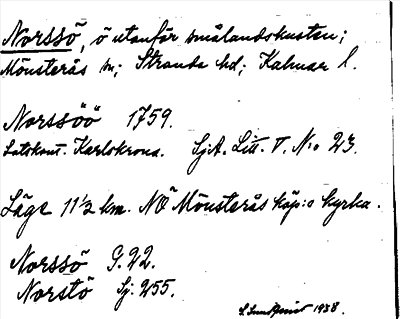 Norssö, ö utanför smålandskusten;
Mönsterås sn; Stranda hd; Kalmar l.
Norssöö 1759.
Lotskont. Karlskrona. SjA. Litt. V. N:o 23.
Läge 11½ km. NÖ Mönsterås köp:s kyrka.
Norssö G.22.
Norstö Sj. 255.
S. Sundquist 1938.